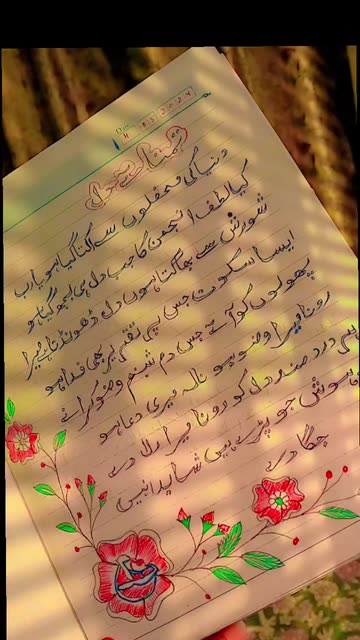 تمنائے دل
دنیا کی محفلوں سے اکتا گیا ہو یا رب
کیا لطف انجمن کا جب دل ہی بجھ گیا ہو
شورش سے بھاگتا ہوں دل ڈھونڈتا ہے میرا
ایسا سکوت جس پہ تقریر بھی فدا ہو
پھولوں کو آئے جس دم شبنم وضو کرانے
رونا میرا وضو ہو نالہ میری دعا ہو
ہر درد مند دل کو رونا میرا رلا دے
بے ہوش جو پڑے ہیں شاید انہیں
جگا دے